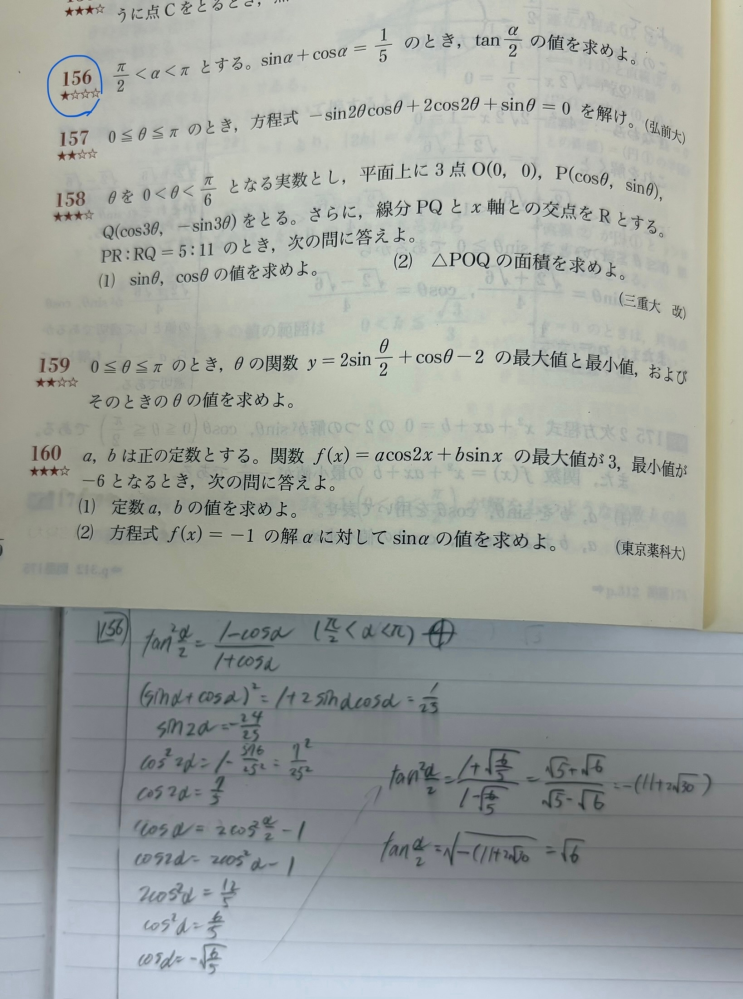 ★★★☆ うに点Cをとるとき，
156 π/2<α<π とする。sinα+cosα=1/5 のとき，tan α/2 の値を求めよ。
★☆☆☆
157 0≦θ≦π のとき，方程式 −sin2θcosθ+2cos2θ+sinθ=0 を解け。(弘前大)
★★☆☆
158 θを 0<θ<π/6 となる実数とし，平面上に3点O(0, 0)，P(cosθ, sinθ)，
★★★☆ Q(cos3θ, −sin3θ)をとる。さらに，線分PQとx軸との交点をRとする。
PR：RQ=5：11 のとき，次の問に答えよ。
(1) sinθ，cosθの値を求めよ。 (2) △POQの面積を求めよ。
(三重大 改)
159 0≦θ≦π のとき，θの関数 y=2sin θ/2 +cosθ−2 の最大値と最小値，および
★★☆☆ そのときのθの値を求めよ。
160 a, bは正の定数とする。関数 f(x)=acos2x+bsinx の最大値が3，最小値が
★★★☆ −6となるとき，次の問に答えよ。
(1) 定数a, bの値を求めよ。
(2) 方程式 f(x)=−1 の解αに対してsinαの値を求めよ。 (東京薬科大)
156 tan²α/2 = (1−cosα)/(1+cosα) (π/2<α<π) −④
(sinα+cosα)² = 1+2sinαcosα = 1/25
sin2α = −24/25
cos²2α = 1−576/25² = 7²/25²
cos2α = 7/5
cosα = 2cos²α/2 −1
cos2α = 2cos²α −1
2cos²α = 12/5
cos²α = 6/5
cosα = −√(6/5)
tan²α/2 = (1+√(6/5))/(1−√(6/5)) = (√5+√6)/(√5−√6) = −(11+2√30)
tan α/2 = √(−(11+2√30) = √6